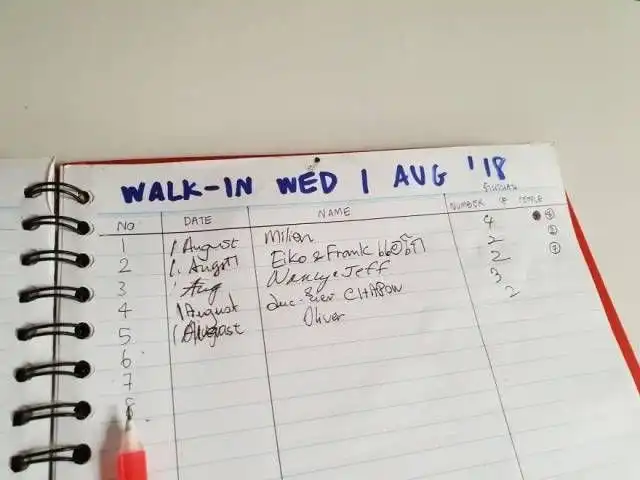 WALK-IN WED 1 AUG '18
NO DATE NAME NUMBER OF PEOPLE
1 1 August Milien 4 ④
2 1. August Eiko & Frank 2 ②
3 1 Aug Nancy & Jeff 2 ⑦
4 1 August CHAPON 3
5 1 August Oliver 2
6
7
8